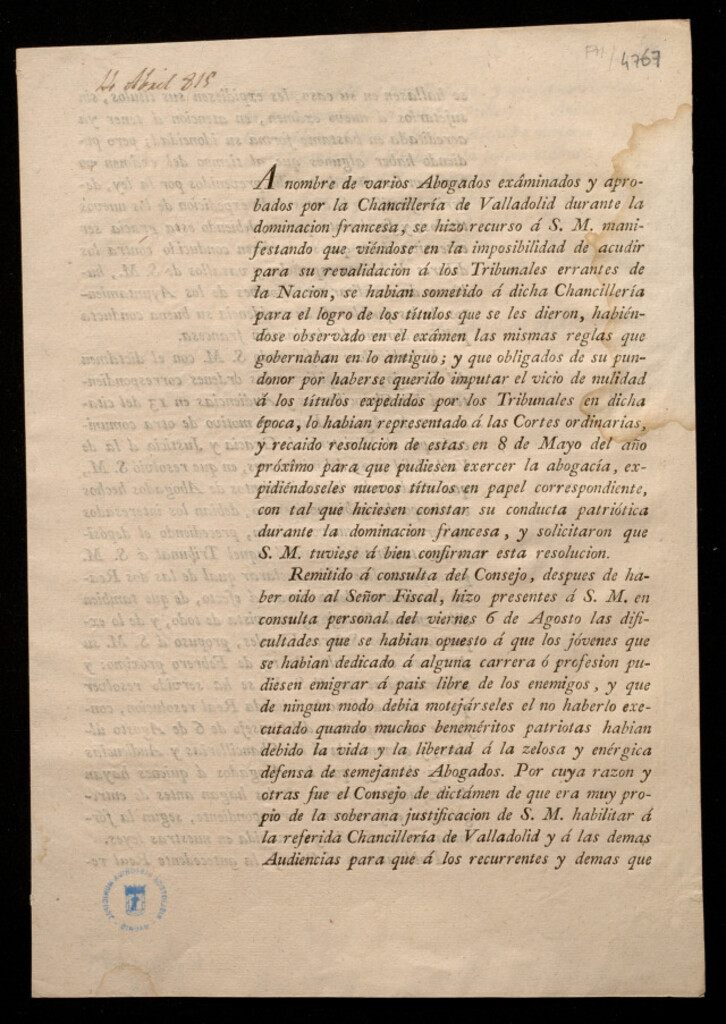 4 Abril 815
FA/4767
A nombre de varios Abogados exâminados y apro-
bados por la Chancillería de Valladolid durante la
dominacion francesa, se hizo recurso á S. M. mani-
festando que viéndose en la imposibilidad de acudir
para su revalidacion á los Tribunales errantes de
la Nacion, se habian sometido á dicha Chancillería
para el logro de los títulos que se les dieron, habién-
dose observado en el exâmen las mismas reglas que
gobernaban en lo antiguo; y que obligados de su pun-
donor por haberse querido imputar el vicio de nulidad
á los títulos expedidos por los Tribunales en dicha
época, lo habian representado á las Cortes ordinarias,
y recaido resolucion de estas en 8 de Mayo del año
próximo para que pudiesen exercer la abogacía, ex-
pidiéndoseles nuevos títulos en papel correspondiente,
con tal que hiciesen constar su conducta patriótica
durante la dominacion francesa, y solicitaron que
S. M. tuviese á bien confirmar esta resolucion.
Remitido á consulta del Consejo, despues de ha-
ber oido al Señor Fiscal, hizo presentes á S. M. en
consulta personal del viernes 6 de Agosto las difi-
cultades que se habian opuesto á que los jóvenes que
se habian dedicado á alguna carrera ó profesion pu-
diesen emigrar á pais libre de los enemigos, y que
de ningun modo debia motejárseles el no haberlo exe-
cutado quando muchos beneméritos patriotas habian
debido la vida y la libertad á la zelosa y enérgica
defensa de semejantes Abogados. Por cuya razon y
otras fue el Consejo de dictámen de que era muy pro-
pio de la soberana justificacion de S. M. habilitar á
la referida Chancillería de Valladolid y á las demas
Audiencias para que á los recurrentes y demas que